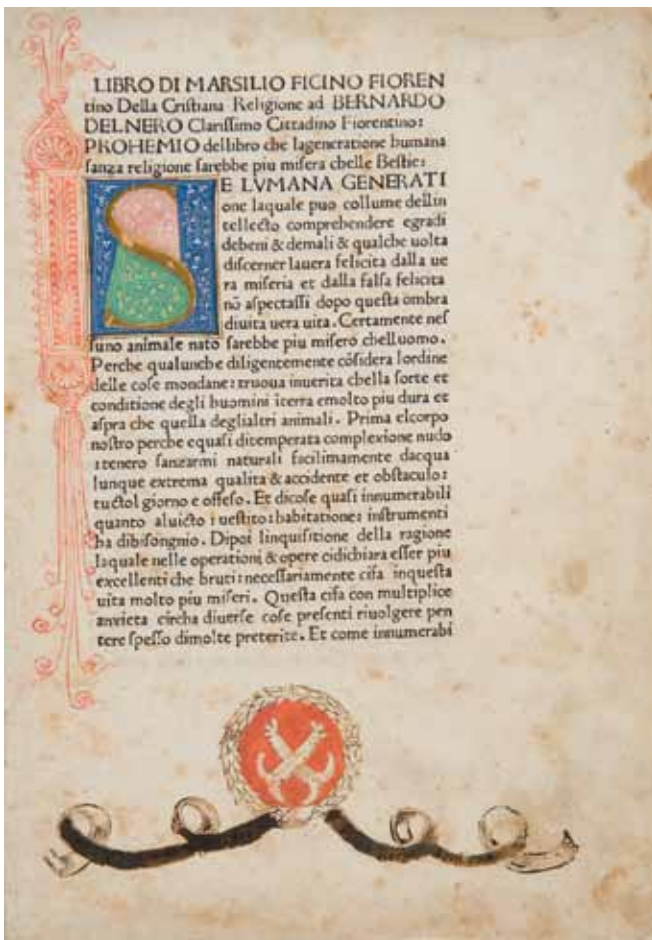 LIBRO DI MARSILIO FICINO FIOREN
tino Della Cristiana Religione ad BERNARDO
DELNERO Clarissimo Cittadino Fiorentino:
PROHEMIO del libro che lageneratione humana
sanza religione sarebbe piu misera chelle Bestie:
SE LVMANA GENERATI
one laquale puo collume dellin
tellecto comprehendere egradi
debeni & demali & qualche uolta
discerner lauera felicita dalla ue
ra miseria et dalla falsa felicita
nõ aspectassi dopo questa ombra
diuita uera uita. Certamente nes
suno animale nato sarebbe piu misero chelluomo.
Perche qualunche diligentemente cõsidera lordine
delle cose mondane: truoua inuerita chella sorte et
conditione degli huomini ĩterra emolto piu dura et
aspra che quella deglialtri animali. Prima elcorpo
nostro perche equasi ditemperata complexione nudo
:tenero sanzarmi naturali facilimamente dacqua
lunque extrema qualita & accidente et obstaculo:
tuctol giorno e offeso. Et dicose quasi innumerabili
quanto aluicto i uestito: habitatione: instrumenti
ha dibisongnio. Dipoi linquisitione della ragione
laquale nelle operationi & opere cidichiara esser piu
excellenti che bruti: necessariamente cifa inquesta
uita molto piu miseri. Questa cifa con multiplice
anxieta circha diuerse cose presenti riuolgere pen
tere spesso dimolte preterite. Et come innumerabi